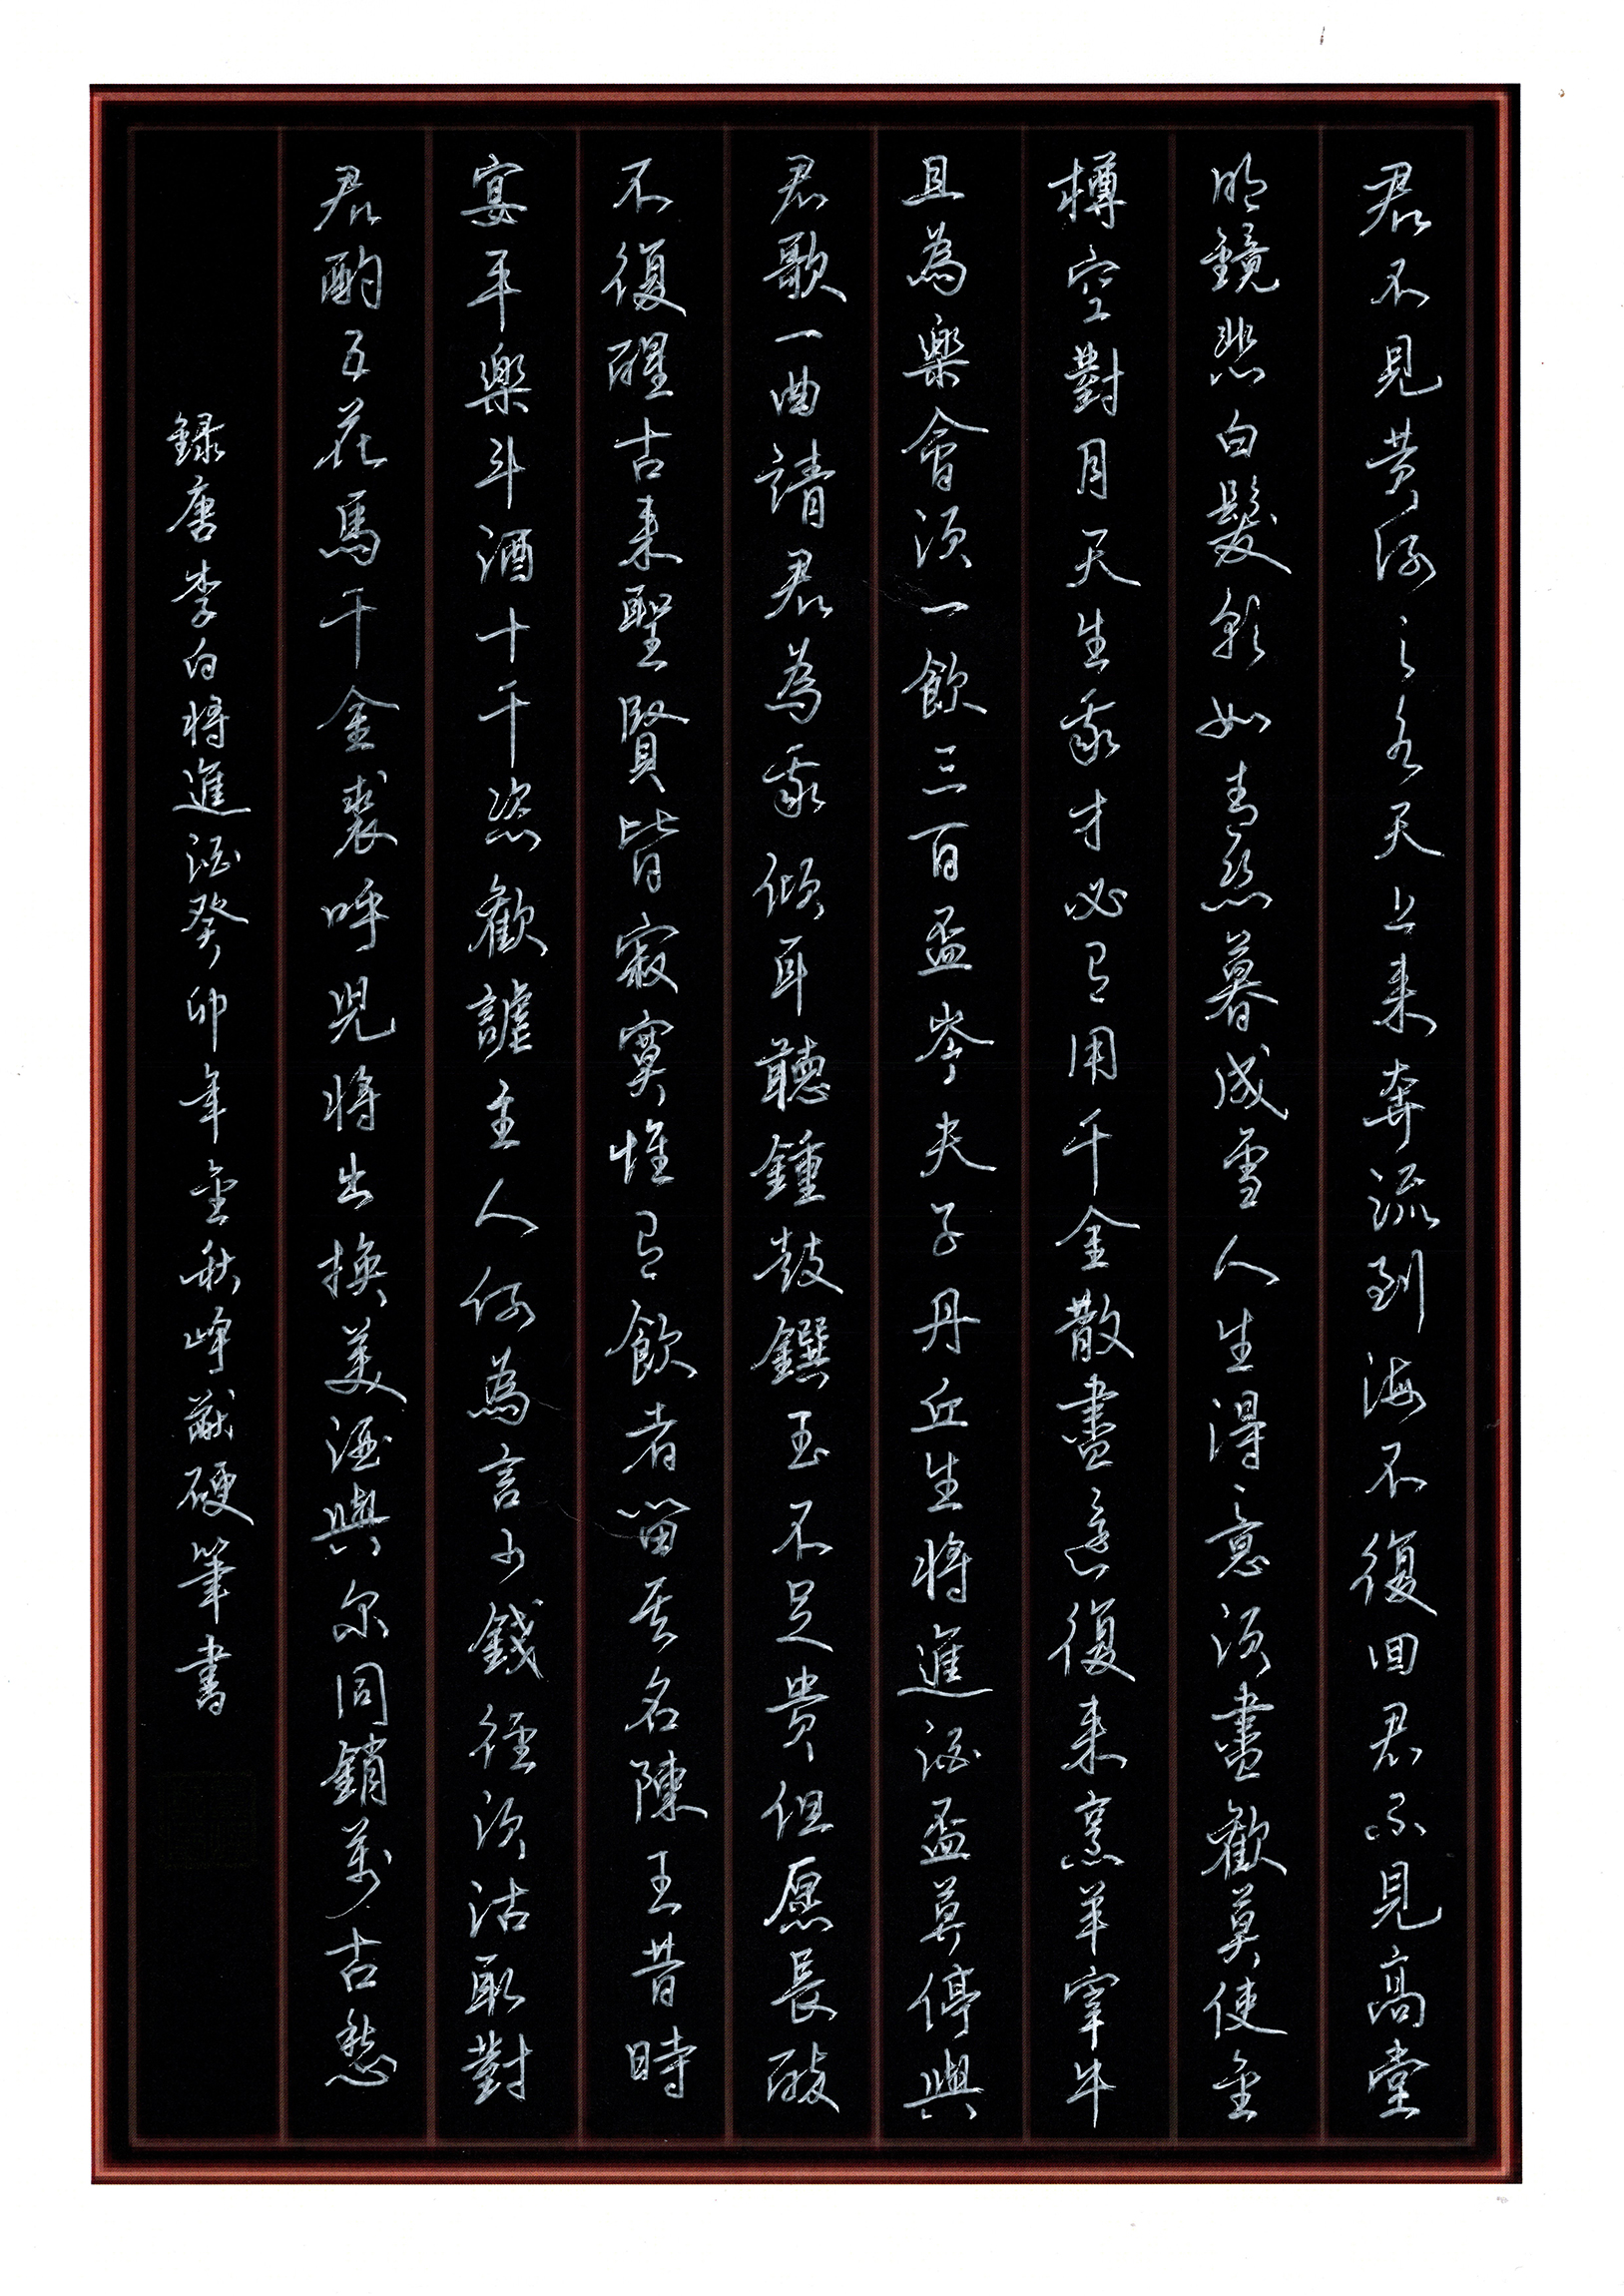 君不見黄河之水天上来奔流到海不復回君不見高堂
明鏡悲白髮朝如青絲暮成雪人生得意須盡歡莫使金
樽空對月天生我才必有用千金散盡還復来烹羊宰牛
且為樂會須一飲三百盃岑夫子丹丘生将進酒盃莫停與
君歌一曲請君為我傾耳聽鍾鼓饌玉不足貴但愿長醉
不復醒古来聖賢皆寂寞惟有飲者留其名陳王昔時
宴平樂斗酒十千恣歡謔主人何為言少錢径須沽取對
君酌五花馬千金裘呼兒将出換美酒與尔同銷萬古愁
録唐李白将進酒癸卯年金秋峰猷硬筆書